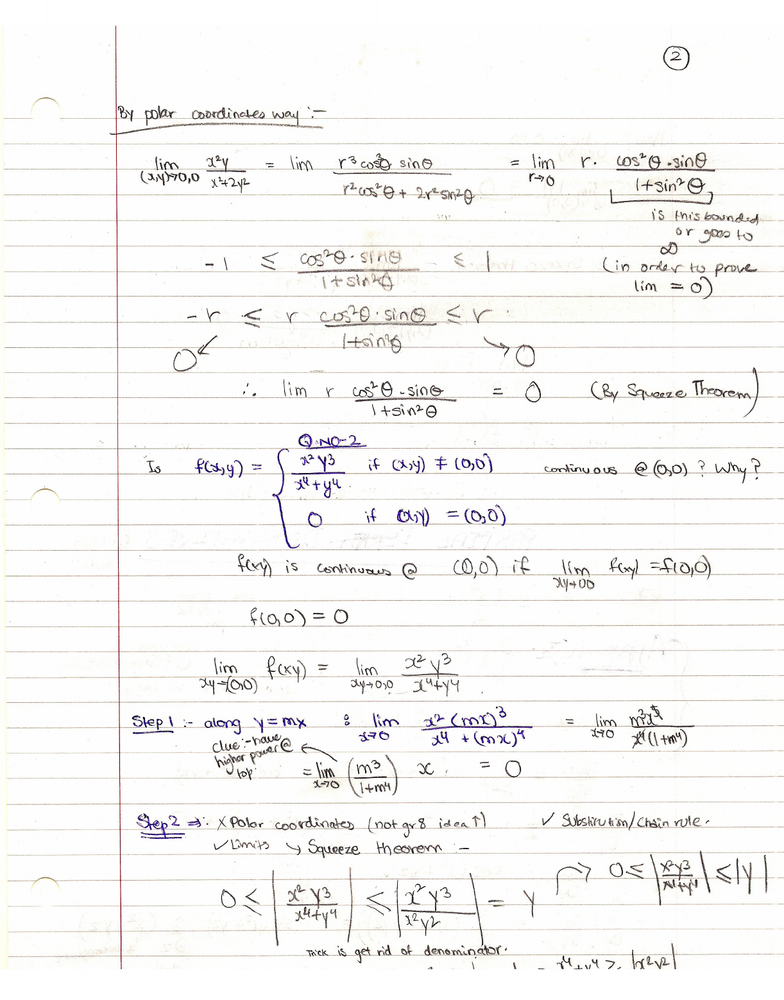 2
By polar coordinates way :-
lim (x,y)→0,0 x²y / x²+2y² = lim r³cos²θ sinθ / r²cos²θ + 2r²sin²θ = lim r→0 r. cos²θ.sinθ / 1+sin²θ
is this bounded
or goes to
∞
(in order to prove
lim = 0)
-1 ≤ cos²θ.sinθ / 1+sin²θ ≤ 1
-r ≤ r cos²θ.sinθ / 1+sin²θ ≤ r.
0 0
∴ lim r cos²θ.sinθ / 1+sin²θ = 0 (By Squeeze Theorem)
Q.NO-2
Is f(x,y) = { x²y3 / x⁴+y⁴ if (x,y) ≠ (0,0) continuous @ (0,0) ? Why?
0 if (x,y) = (0,0)
f(xy) is continuous @ (0,0) if lim xy→00 f(xy) = f(0,0)
f(0,0) = 0
lim xy→(0,0) f(xy) = lim xy→0,0 x²y³ / x⁴+y⁴
Step 1 :- along y=mx : lim x→0 x²(mx)³ / x⁴+(mx)⁴ = lim x→0 m³x⁵ / x⁴(1+m⁴)
clue:-have
higher power @
top.
= lim x→0 (m³ / 1+m⁴) x. = 0
Step 2 ⇒: X Polar coordinates (not gr8 idea↑) ✓ Substitution/Chain rule.
✓ Limits ↘ Squeeze theorem :-
0 ≤ |x²y3 / x⁴+y⁴| ≤ |x²y3 / x²y²| = y → 0 ≤ |x²y3 / x⁴+y⁴| ≤ |y|
Trick is get rid of denominator.
x⁴+y⁴ ≥ |x²y²|